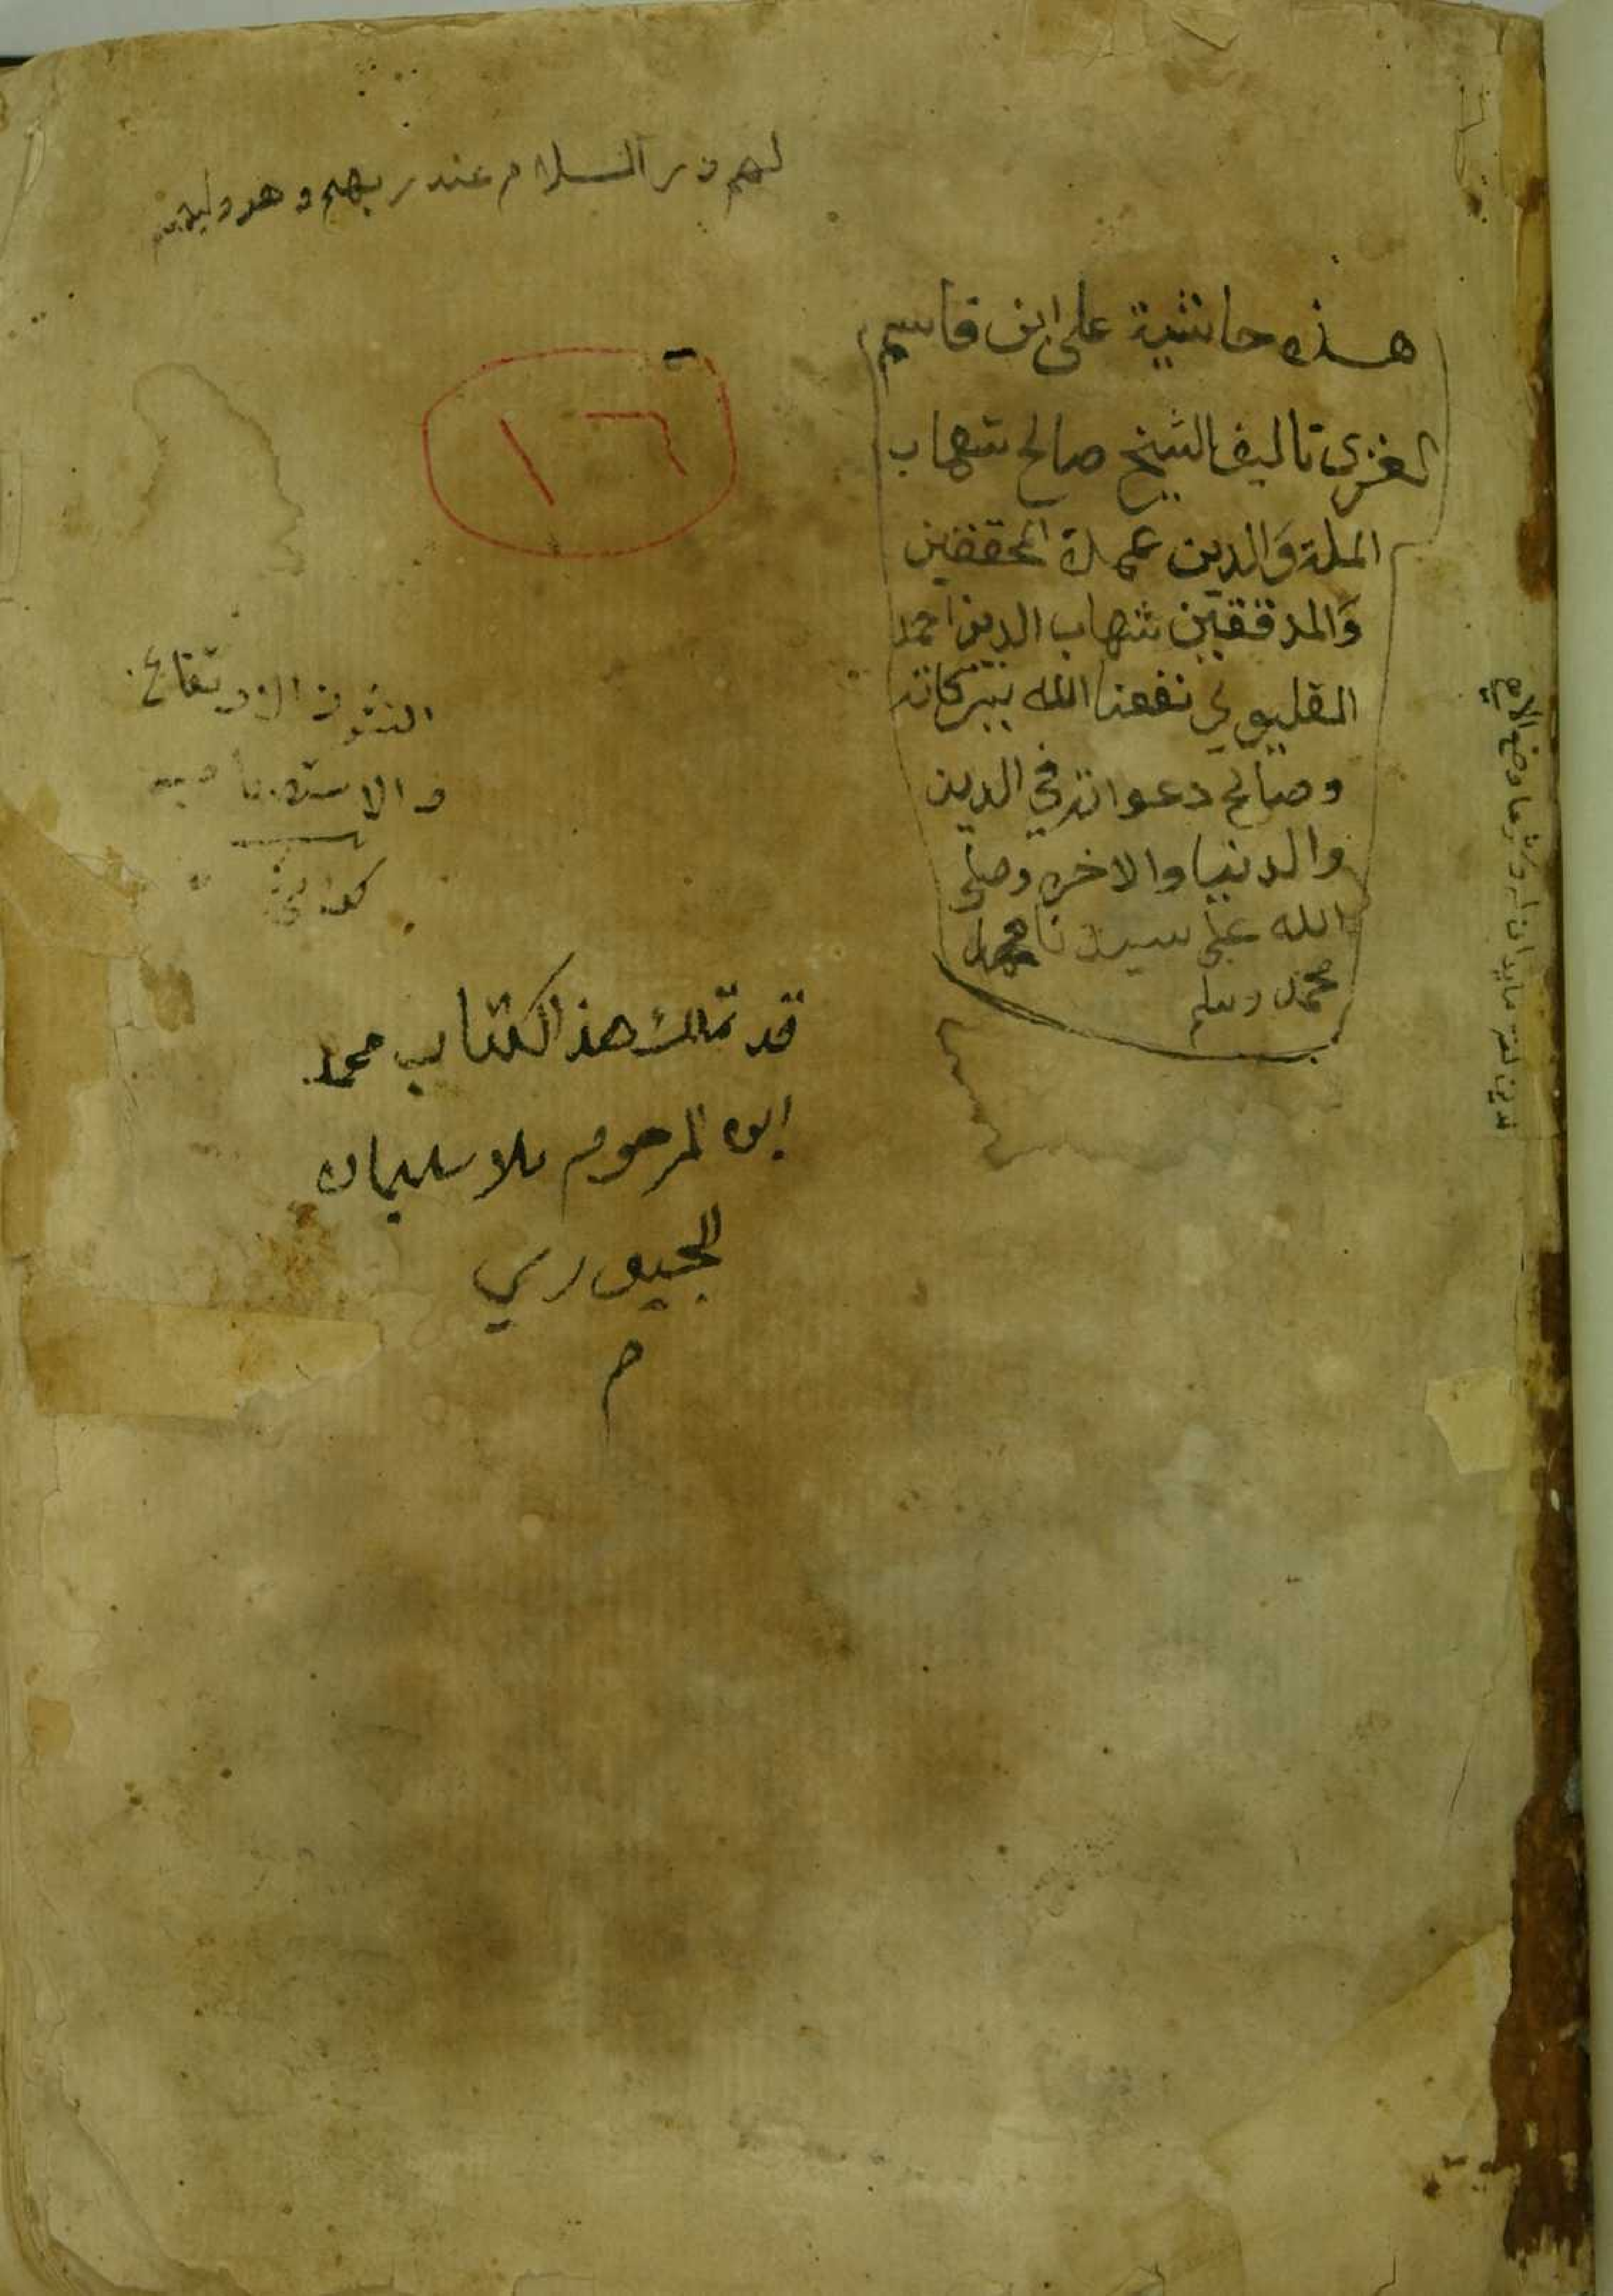 لهم در السلام عند ربهم وهو وليهم
هذه حاشية على ابن قاسم
الغزي تاليف الشيخ صالح شهاب
الملة وَالدين عمدة المحققين
وَالمدققين شهاب الدين احمد
القليوبي نفعنا الله ببركاته
وصالح دعواته في الدين
والدنيا والاخره وصلى
الله على سيدنا محمد
محمد وسلم
١٦
النشوز الارتفاع
قد تملك هذا الكتاب محمد
ابن المرحوم ملا سليمان
الجبوري
م